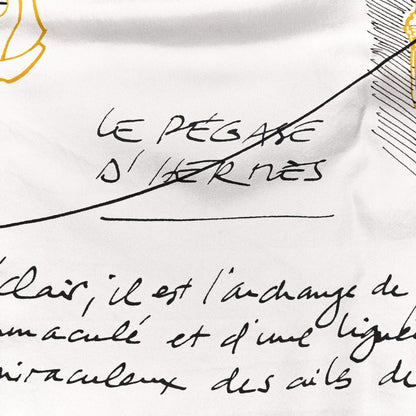 LE PÉGASE
D'HERMÈS
éclair, il est l'archange de
immaculé et d'une
miraculeux des ailes de